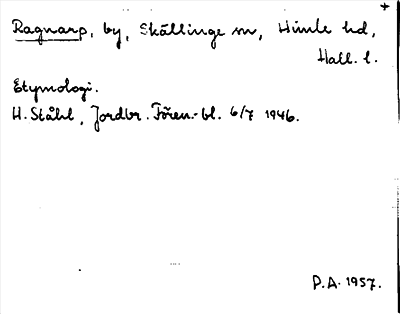 +
Ragnarp, by, Skällinge sn, Himle hd,
Hall. l.
Etymologi.
H. Ståhl, Jordbr. Fören.-bl. 6/7 1946.
P.A. 1957.